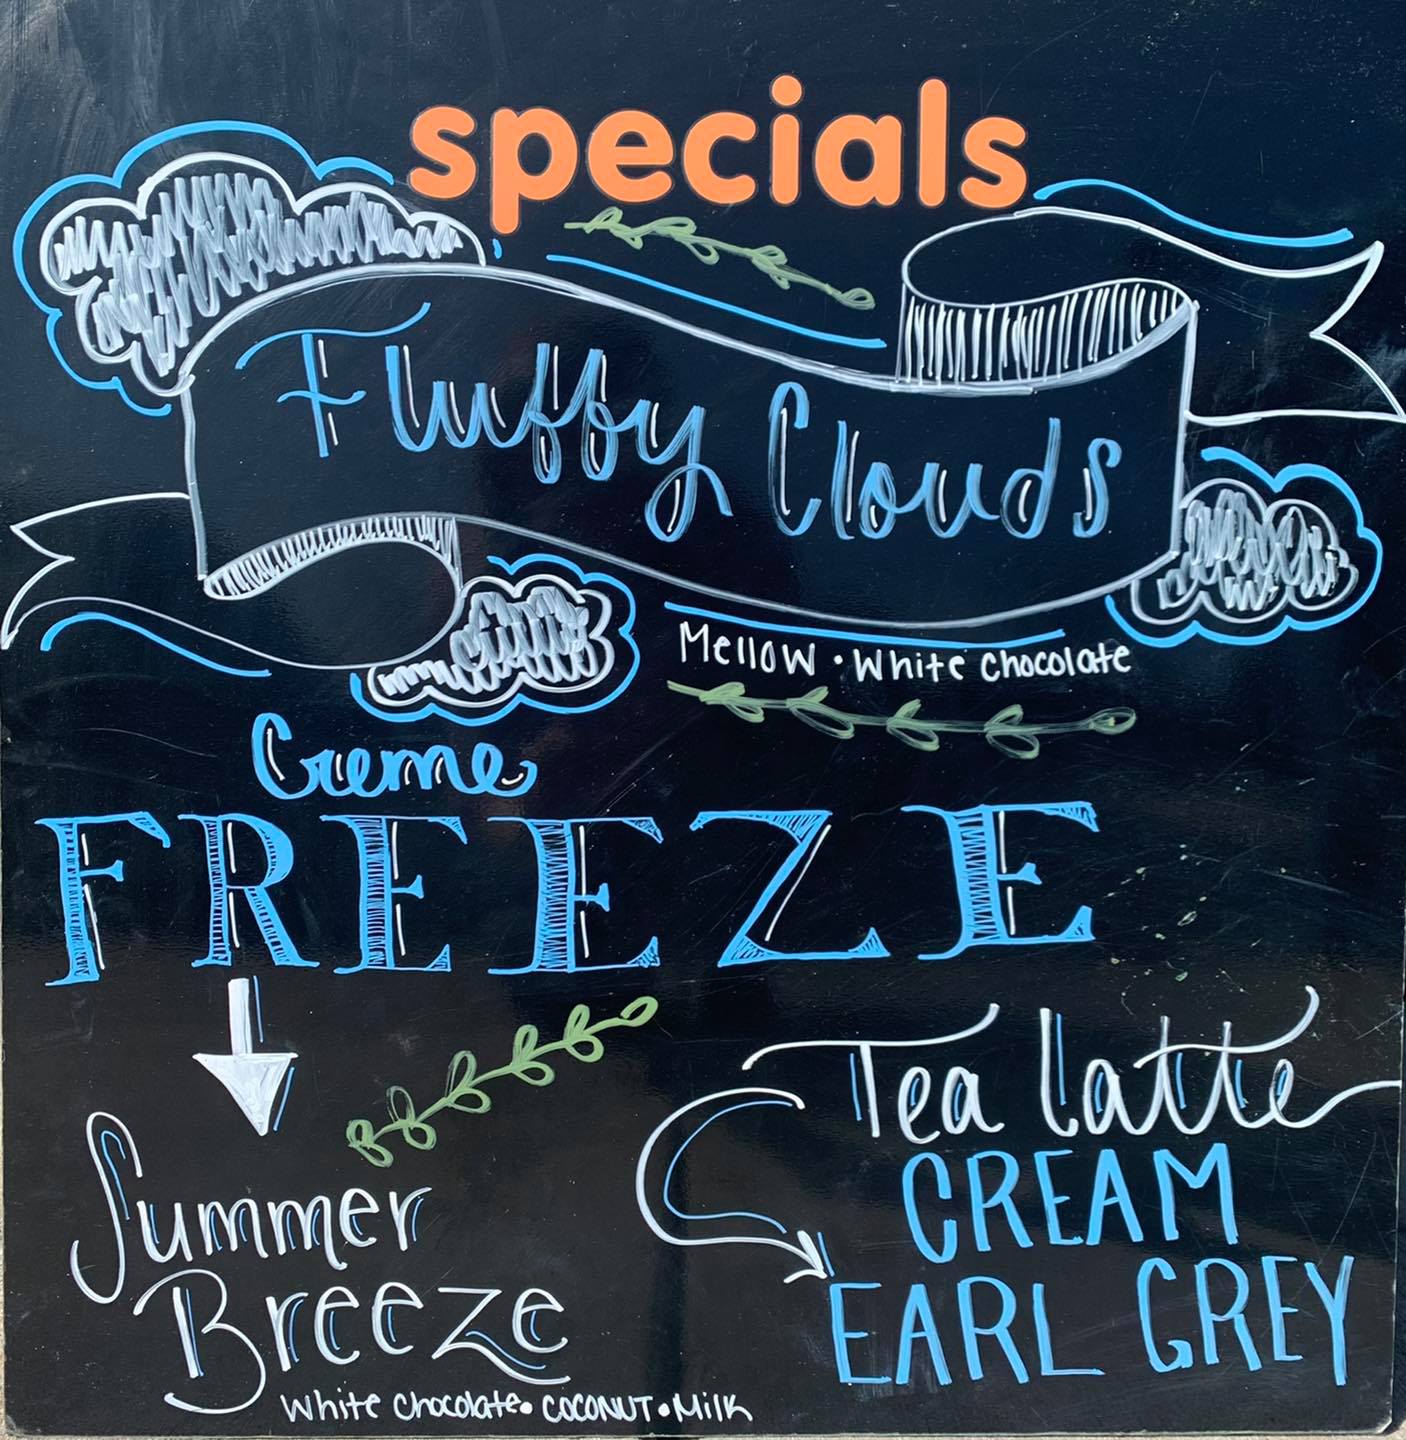 specials
Fluffy Clouds
Mellow • White Chocolate
Creme
FREEZE
Summer
Breeze
White Chocolate • COCONUT • Milk
Tea Latte
CREAM
EARL GREY